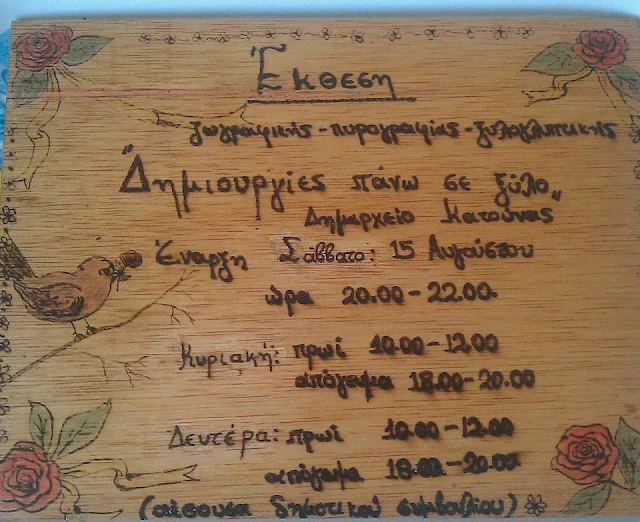 Έκθεση
ζωγραφικής - πυρογραφίας - ξυλογλυπτικής
"Δημιουργίες πάνω σε ξύλο„
Δημαρχείο Κατούνας
Έναρξη Σάββατο: 15 Αυγούστου
ώρα 20.00 - 22.00.
Κυριακή: πρωί 10.00 - 12.00
απόγευμα 18.00 - 20.00
Δευτέρα: πρωί 10.00 - 12.00
απόγευμα 18.00 - 20.00
(αίθουσα δημοτικού συμβουλίου)